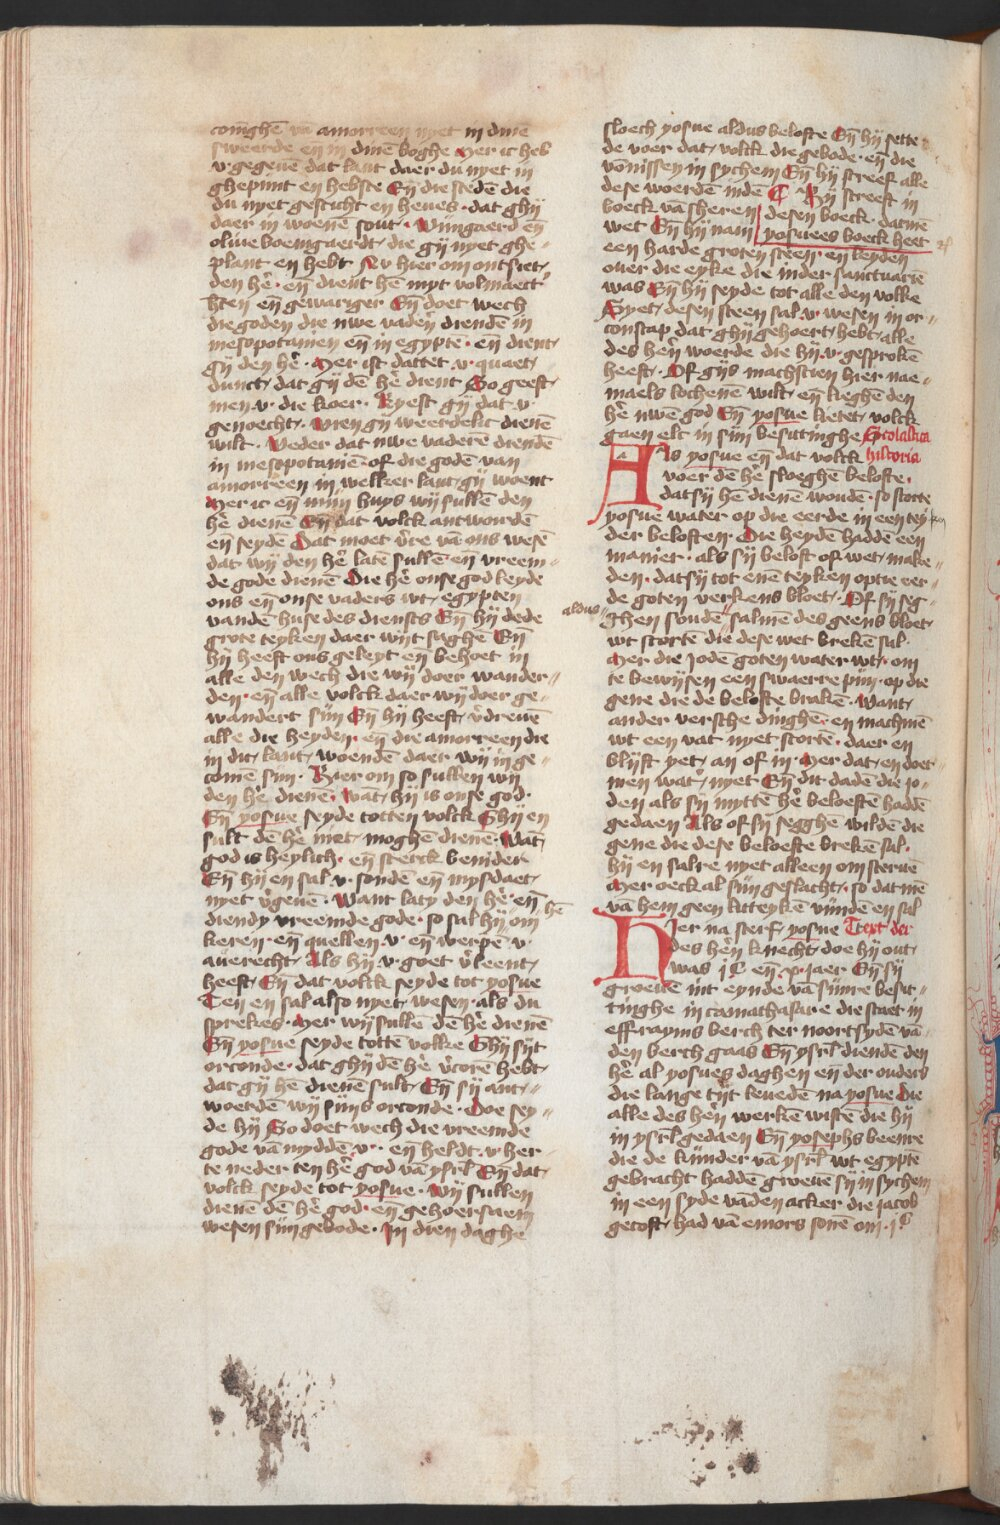 coninghē vā amorreen nyet in dinē
sweerde en in dinē boghe Mer ic heb
v gegeuē dat lant daer du nyet in
ghepint en hebste Eñ die stedē die
du nyet gesticht en heues · dat ghij
daer in woenē sout · Wijngaerd eñ
oliue boemgaerdt · die gij nyet ghe-
plant en hebt Nv hier om ontsiet
den hē · eñ dient hē myt volmaect
hten eñ gewariger Eñ doet wech
die goden die uwe vadeř diendē in
mesopotamien eñ in egypte · eñ dient
gij den hē · Mer ist dattet v · quaet
dunct dat gij dē hē dient So geeft
men v · die koer · Kyest gij dat v ·
genoecht · Wien gij weerdelic dienē
wilt · Weder dat uwe vaderē diendē
in mesopotamiē · of die godē van
amorreen in welker lant gij woent
Mer ic eñ mijn huys wij sullē den
hē dienē Eñ dat volck antwoordē
eñ seydē Dat moet v̄re vā ons wesē
dat wij den hē latē sullē eñ vreem-
de gode dienē Die hē onse god leyde
ons eñ onse vaders wt egypten
vandē huse des diensts Eñ hij dede
grote teyken daer wijt saghē Eñ
hij heeft ons geleyt eñ behoet in
alle den wech die wij doer wander-
den · eñ alle volck daer wij doer ge-
wandert sijn Eñ hij heeft v̄dreuē
alle die heyden · eñ die amorreen die
in dit lant woendē daer wij in ge-
comē sijn · Hier om so sullen wij
den hē dienē · Wāt hij is onse god ·
Eñ yosue seyde totten volck Ghij en
sult dē hē niet moghē dienē · Wāt
god is heylich · eñ sterck benider
Eñ hij en sal v · sondē eñ mysdaet
nyet v̄geuē · Want laty den hē · eñ
diendy vreemde gode · so sal hij om hē
keren · eñ quellen v · eñ werpē v ·
auerecht · Als hij v · goet v̄leent
heeft Eñ dat volck seyde tot yosue
Ten en sal also nyet wesen · als du
sprekes · Mer wij sullē dē hē dienē
Eñ yosue seyde tottē volke Ghij sijt
orconde · dat ghij dē hē v̄corē hebt
dat gij hē dienē sult Eñ sij ant-
woerdē wij sijns orconde · Doe sey-
de hij So doet wech die vreemde
gode vā myddē v · eñ heldt v · her-
te neder ten hē god vā ysrl Eñ dat
volck seyde tot yosue · Wij sullen
dienē dē hē god · eñ gehoersaem
wesen sijn gebode · In dien daghe
sloech yosue aldus belofte Eñ hij sette
de voer dat volck die gebode · eñ die
vonissen in sychem Eñ hij screef alle
dese woerdē indē ¶ Hij screeft in
boeck vā sheren desen boeck · datmē
wet Eñ hij nam yosuees boeck heet
een harde groten steen · eñ leyden
ouer die eyke die inder sanctuariē
was Eñ hij seyde tot alle den volke
Syet desen steen sal v · wesen in or-
conscap dat ghij gehoert hebt alle
des hēñ woerde die hij v · gesprokē
heeft · Of gijs machscien hier nae-
maels lochenē wilt · eñ lieghē den
hē uwē god Eñ yosue lietet volck
gaen elc in sijn besittinghe Scolastica
Als yosue eñ dat volck historia
voer dē hē sloeghē belofte ·
datsij hē dienē woudē · so storte
yosue water op die eerde in een teyken
der beloften · Die heydē haddē een
manier · als sij beloft of wet make-
den · datsij tot enē teyken optie eer-
de goten verkens bloet · Of sij seg-
aldus ghen soudē salmē des geens bloet
wt stortē die dese wet brekē sal ·
Mer die Jodē goten water wt · om
te bewijsen een swaerre pijn · op die
gene die de belofte brakē · Want
ander versche dinghē · en machmē
wt een vat nyet stortē · daer en
blijft yet an of in · Mer dat en doet
men wat̄ nyet Eñ dit dadē die jo-
den als sij myttē hē beloeftē haddē
gedaen Als of sij segghē wildē die
gene die dese beloefte brekē sal ·
hij en salre nyet alleen om steruē
Mer oeck al sijn geslacht · so datmē
vā hem geen litteykē vijndē en sal
Hier na sterf yosue Text der
des hēñ knecht doe hij out
was jC eñ · x · jaer Eñ sij
groeuē int eynde vā sijnre besit-
tinghe in tamathasare die staet in
effrayms berch ter noortsydē vā
den berch gaas Eñ ysrl diendē den
hē al yosues daghen eñ der ouders
die lange tijt leuedē na yosue Die
alle des hēñ werkē wistē die hij
in ysrl gedaen Eñ yosephs beenre
die de kijnder vā ysrl wt egyptē
gebracht haddē groeuē sij in sychem
in een syde vāden acker die jacob
gecoft had vā emors sonē om · jC